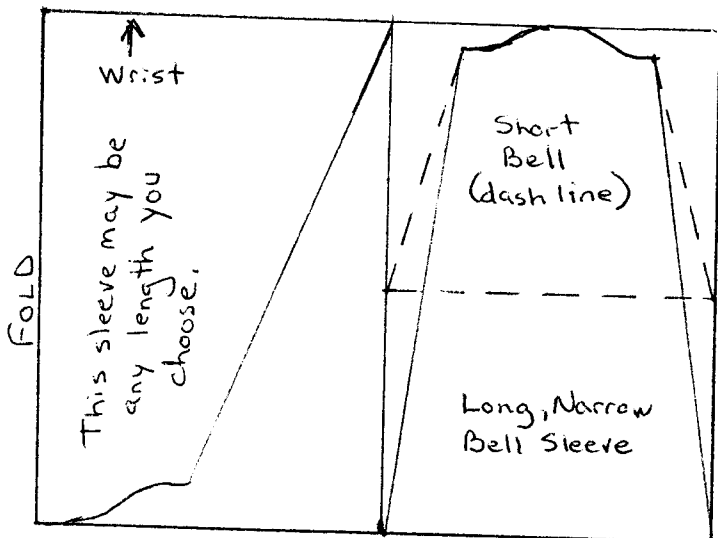 Wrist
This sleeve may be
any length you
choose.
FOLD
Short
Bell
(dash line)
Long, Narrow
Bell Sleeve